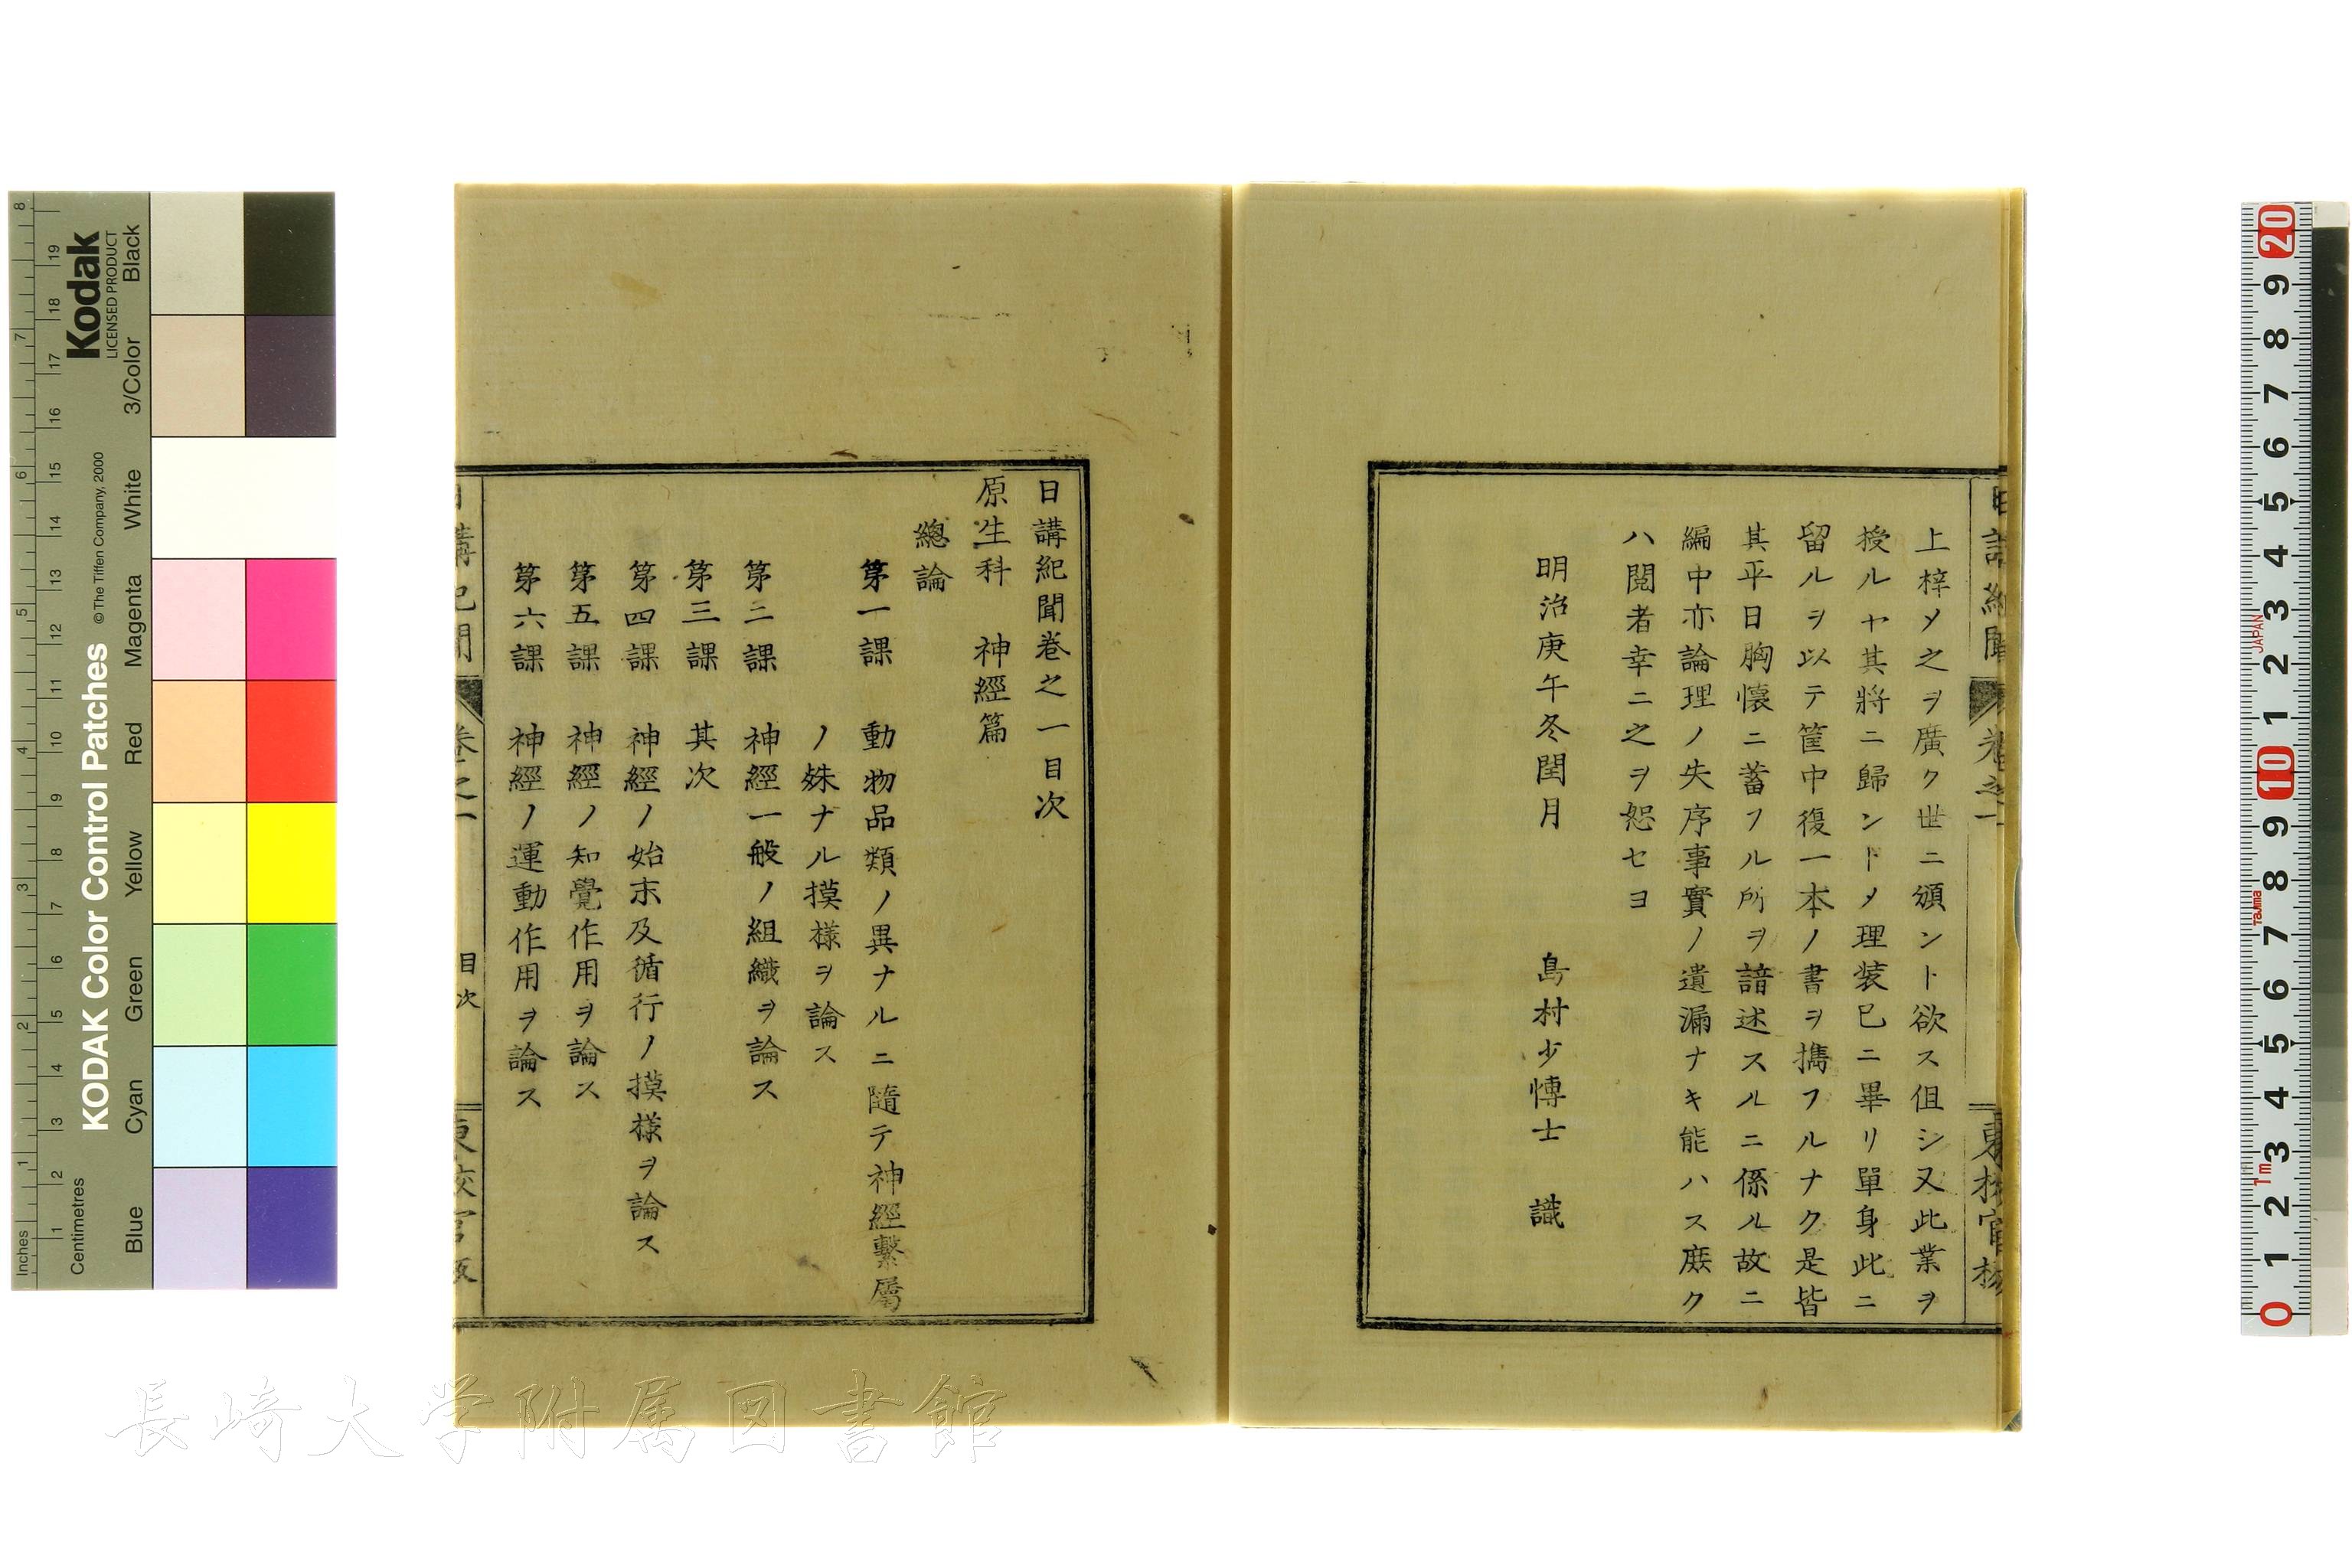 上梓メ之ヲ廣ク世ニ頒ント欲ス但シ又此業ヲ
授ルヤ其將ニ歸ントメ理装已ニ畢リ單身此ニ
留ルヲ以テ筐中復一本ノ書ヲ攜フルナク是皆
其平日胸懷ニ蓄フル所ヲ諳述スルニ係ル故ニ
編中亦論理ノ失序事實ノ遺漏ナキ能ハス庶ク
ハ閲者幸ニ之ヲ恕セヨ
明治庚午冬閏月 島村少博士 識
日講紀聞卷之一目次
原生科 神經篇
總論
第一課 動物品類ノ異ナルニ隨テ神經繫屬
ノ殊ナル摸樣ヲ論ス
第二課 神經一般ノ組織ヲ論ス
第三課 其次
第四課 神經ノ始末及循行ノ摸樣ヲ論ス
第五課 神經ノ知覺作用ヲ論ス
第六課 神經ノ運動作用ヲ論ス
目次
長崎大学附属図書館
Kodak
LICENSED PRODUCT
KODAK Color Control Patches
© The Tiffen Company, 2000
Inches
Centimetres
1 2 3 4 5 6 7 8
1 2 3 4 5 6 7 8 9 10 11 12 13 14 15 16 17 18 19
Blue Cyan Green Yellow Red Magenta White 3/Color Black
0 1 2 3 4 5 6 7 8 9 10 1 2 3 4 5 6 7 8 9 20
1m Tajima JAPAN